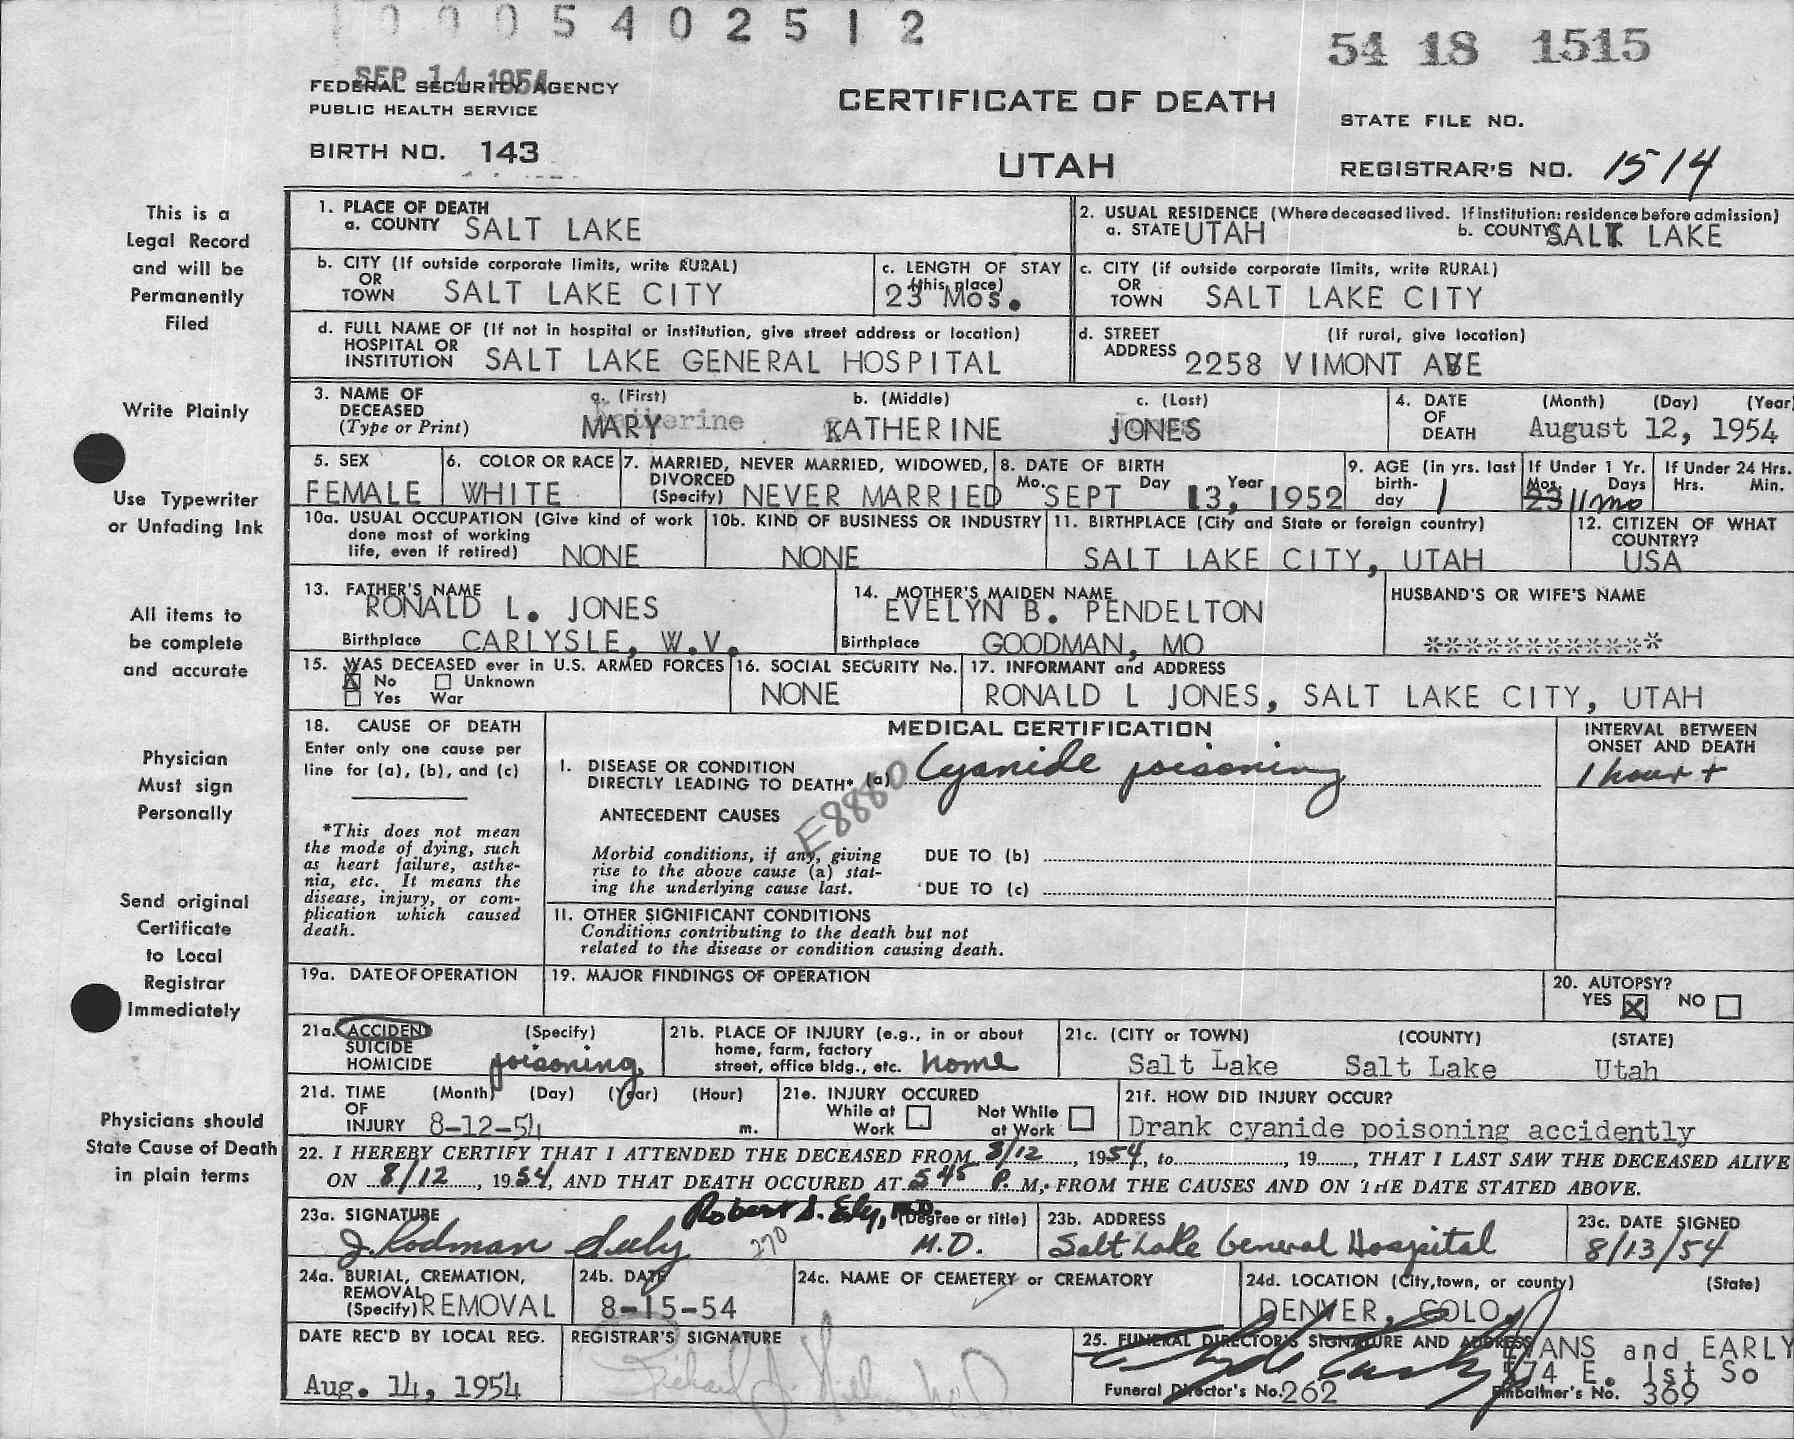 0005402512
54 18 1515
SEP 14 1954
FEDERAL SECURITY AGENCY
PUBLIC HEALTH SERVICE
CERTIFICATE OF DEATH
STATE FILE NO.
BIRTH NO. 143
UTAH
REGISTRAR'S NO. 1514
This is a
Legal Record
and will be
Permanently
Filed
Write Plainly
Use Typewriter
or Unfading Ink
All items to
be complete
and accurate
Physician
Must sign
Personally
Send original
Certificate
to Local
Registrar
Immediately
Physicians should
State Cause of Death
in plain terms
1. PLACE OF DEATH
a. COUNTY SALT LAKE
2. USUAL RESIDENCE (Where deceased lived. If institution: residence before admission)
a. STATE UTAH b. COUNTY SALT LAKE
b. CITY (If outside corporate limits, write RURAL)
OR
TOWN SALT LAKE CITY
c. LENGTH OF STAY
(this place)
23 Mos.
c. CITY (if outside corporate limits, write RURAL)
OR
TOWN SALT LAKE CITY
d. FULL NAME OF (If not in hospital or institution, give street address or location)
HOSPITAL OR
INSTITUTION SALT LAKE GENERAL HOSPITAL
d. STREET (If rural, give location)
ADDRESS 2258 VIMONT AVE
3. NAME OF
DECEASED
(Type or Print)
a. (First) b. (Middle) c. (Last)
MARY KATHERINE JONES
4. DATE (Month) (Day) (Year)
OF
DEATH August 12, 1954
5. SEX
FEMALE
6. COLOR OR RACE
WHITE
7. MARRIED, NEVER MARRIED, WIDOWED,
DIVORCED
(Specify) NEVER MARRIED
8. DATE OF BIRTH
Mo. SEPT Day 13, Year 1952
9. AGE (in yrs. last
birth-
day 1
If Under 1 Yr.
Mos. Days
23 11mo
If Under 24 Hrs.
Hrs. Min.
10a. USUAL OCCUPATION (Give kind of work
done most of working
life, even if retired) NONE
10b. KIND OF BUSINESS OR INDUSTRY
NONE
11. BIRTHPLACE (City and State or foreign country)
SALT LAKE CITY, UTAH
12. CITIZEN OF WHAT
COUNTRY?
USA
13. FATHER'S NAME
RONALD L. JONES
Birthplace CARLYSLE, W.V.
14. MOTHER'S MAIDEN NAME
EVELYN B. PENDELTON
Birthplace GOODMAN, MO
HUSBAND'S OR WIFE'S NAME
************
15. WAS DECEASED ever in U.S. ARMED FORCES
X No Unknown
Yes War
16. SOCIAL SECURITY No.
NONE
17. INFORMANT and ADDRESS
RONALD L JONES, SALT LAKE CITY, UTAH
18. CAUSE OF DEATH
Enter only one cause per
line for (a), (b), and (c)
*This does not mean
the mode of dying, such
as heart failure, asthe-
nia, etc. It means the
disease, injury, or com-
plication which caused
death.
MEDICAL CERTIFICATION
I. DISEASE OR CONDITION
DIRECTLY LEADING TO DEATH* (a) Cyanide poisoning
E8880
ANTECEDENT CAUSES
Morbid conditions, if any, giving
rise to the above cause (a) stat-
ing the underlying cause last.
DUE TO (b)
DUE TO (c)
INTERVAL BETWEEN
ONSET AND DEATH
1 hour +
II. OTHER SIGNIFICANT CONDITIONS
Conditions contributing to the death but not
related to the disease or condition causing death.
19a. DATE OF OPERATION
19. MAJOR FINDINGS OF OPERATION
20. AUTOPSY?
YES X NO
21a. ACCIDENT (Specify)
SUICIDE
HOMICIDE poisoning
21b. PLACE OF INJURY (e.g., in or about
home, farm, factory
street, office bldg., etc. home
21c. (CITY or TOWN) (COUNTY) (STATE)
Salt Lake Salt Lake Utah
21d. TIME (Month) (Day) (Year) (Hour)
OF
INJURY 8-12-54 m.
21e. INJURY OCCURED
While at Work Not While at Work
21f. HOW DID INJURY OCCUR?
Drank cyanide poisoning accidently
22. I HEREBY CERTIFY THAT I ATTENDED THE DECEASED FROM 8/12, 1954, to, 19, THAT I LAST SAW THE DECEASED ALIVE
ON 8/12, 1954, AND THAT DEATH OCCURED AT 5 45 P. M, FROM THE CAUSES AND ON THE DATE STATED ABOVE.
23a. SIGNATURE Robert S. Ely, M.D. (Degree or title)
J. Rodman Seely 270 M.D.
23b. ADDRESS
Salt Lake General Hospital
23c. DATE SIGNED
8/13/54
24a. BURIAL, CREMATION,
REMOVAL
(Specify) REMOVAL
24b. DATE
8-15-54
24c. NAME OF CEMETERY or CREMATORY
24d. LOCATION (City, town, or county) (State)
DENVER, COLO
DATE REC'D BY LOCAL REG.
Aug. 14, 1954
REGISTRAR'S SIGNATURE
25. FUNERAL DIRECTOR'S SIGNATURE AND ADDRESS
EVANS and EARLY
574 E. 1st So
Funeral Director's No. 262 Embalmer's No. 369